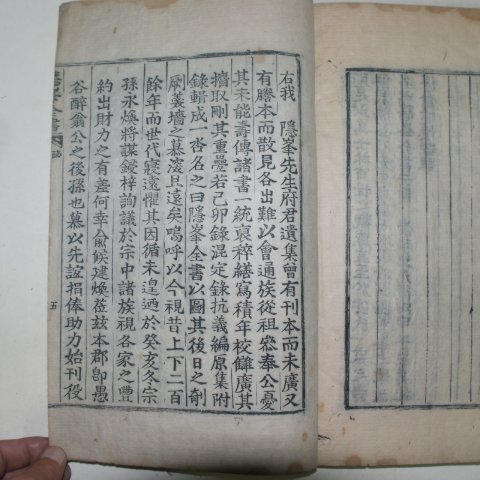 右我 隱峯先生府君遺集曾有刊本而未廣又
有謄本而散見各出難以會通族從祖叅奉公憂
其未能壽傳諸書一統裒稡繕寫積年校讎廣其
攟取刪其重疊若己卯錄混定錄抗義編原集附
錄輯成一沓名之曰隱峯全書以圖其後日之剞
劂羹墻之慕深且遠矣嗚呼以今視昔上下二百
餘年而世代寢遠懼其因循未遑迺於癸亥冬宗
孫永煥將謀鋟梓詢議於宗中諸族視各家之豐
約出財力之有差何幸兪候建煥莅玆本郡卽愚
谷醉翁公之後孫也慕以先誼捐俸助力始刊役
全書
五